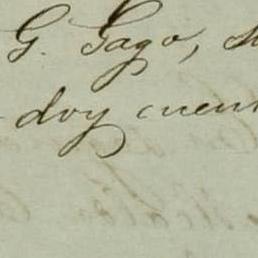 G. Gago, s
doy cuen